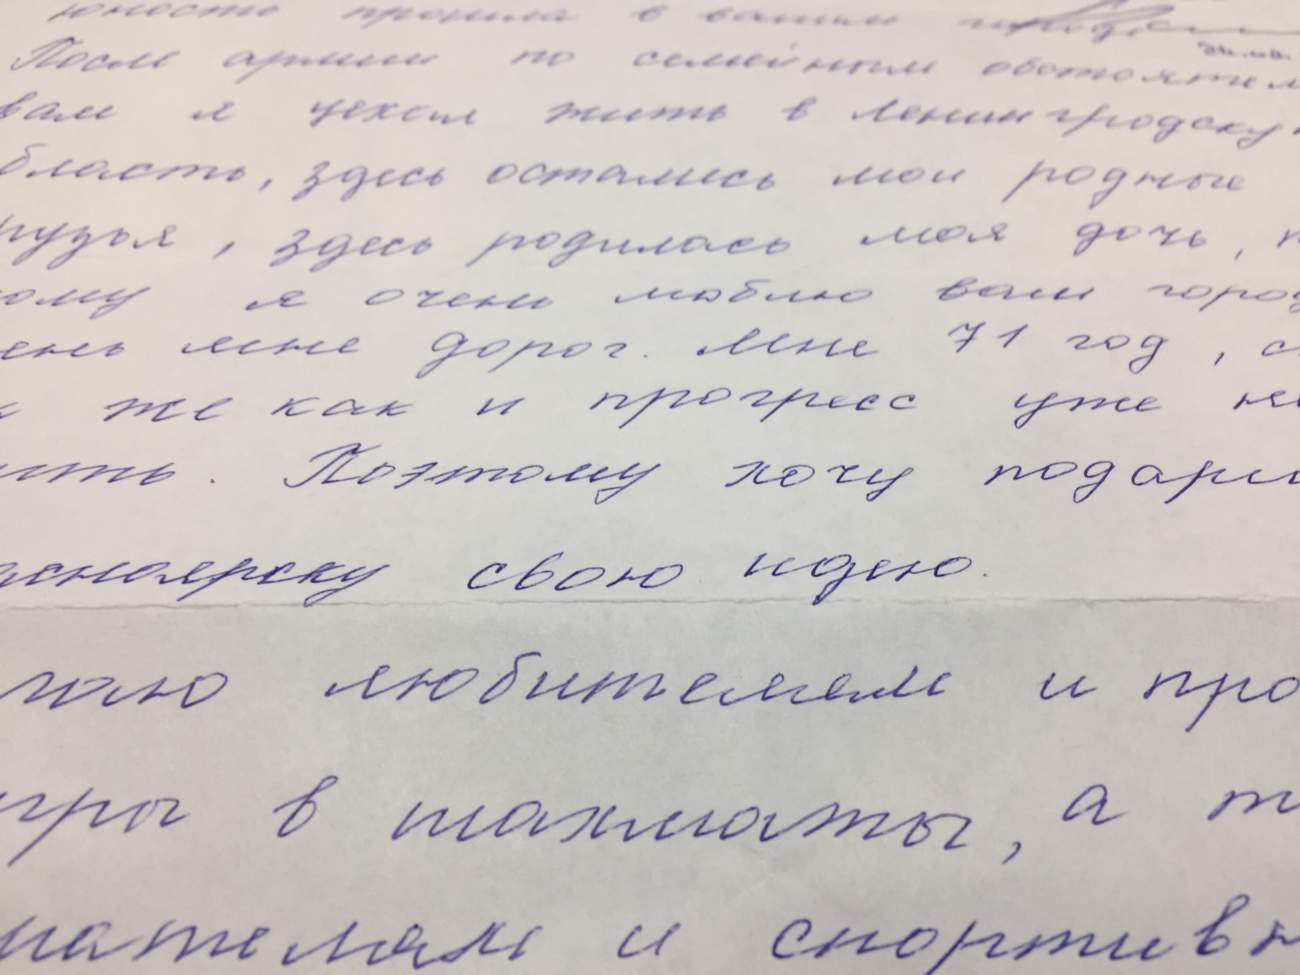 юность прошла в вашем
После армии по семейным обстоятел
вам я уехал жить в Ленинградску
бласть, здесь остались мои родные
рузья, здесь родилась моя дочь, п
ому я очень люблю ваш город
ень мне дорог. Мне 71 год, с
же как и прогресс уже не
ить. Поэтому хочу подари
асноярску свою идею.
любителям и про
игры в шахматы, а т
мателям и спортивн